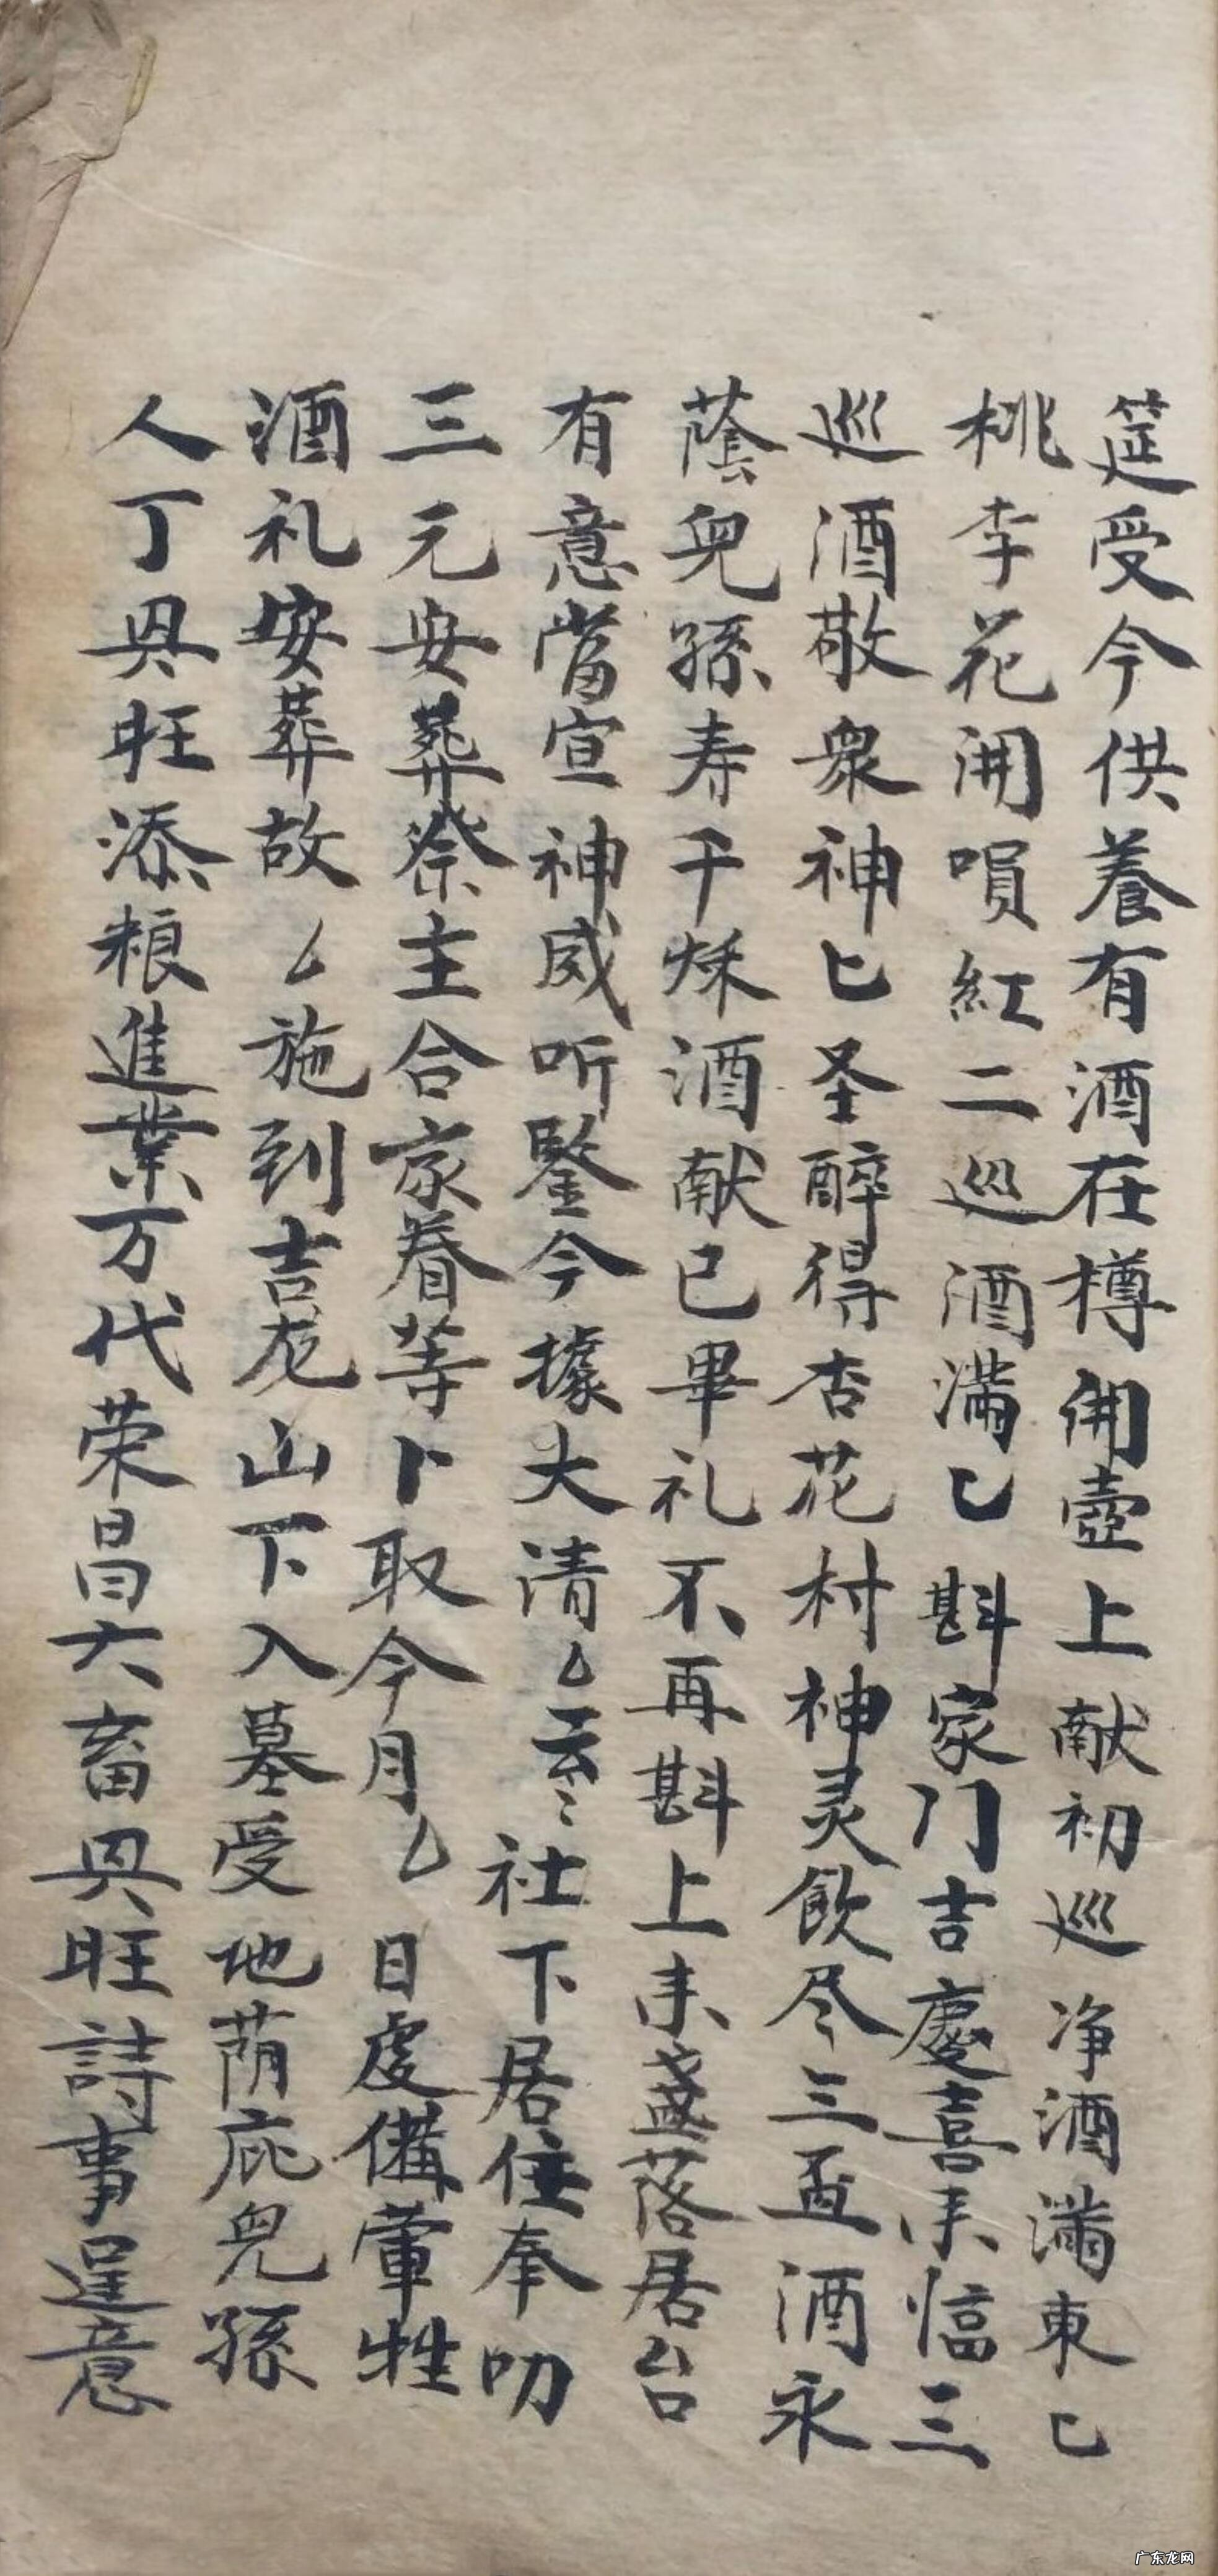 筵受今供养有酒在樽開壺上献初巡净酒滿東匕
桃李花開唄紅二巡酒滿匕斟家门吉慶喜未臨三
巡酒敬衆神匕圣醉得杏花村神灵飲尽三盃酒永
蔭兒孫寿千秌酒献已畢礼不再斟上未盞落居台
有意當宣神威听鑒今據大清厶云〻社下居住奉叨
三元安葬祭主合家眷等卜取今月厶日虔備葷牲
酒礼安葬故厶施到吉龙山下入墓受地荫庇兒孫
人丁兴旺添粮進業万代荣昌六畜兴旺詩事逞意
广东龙网